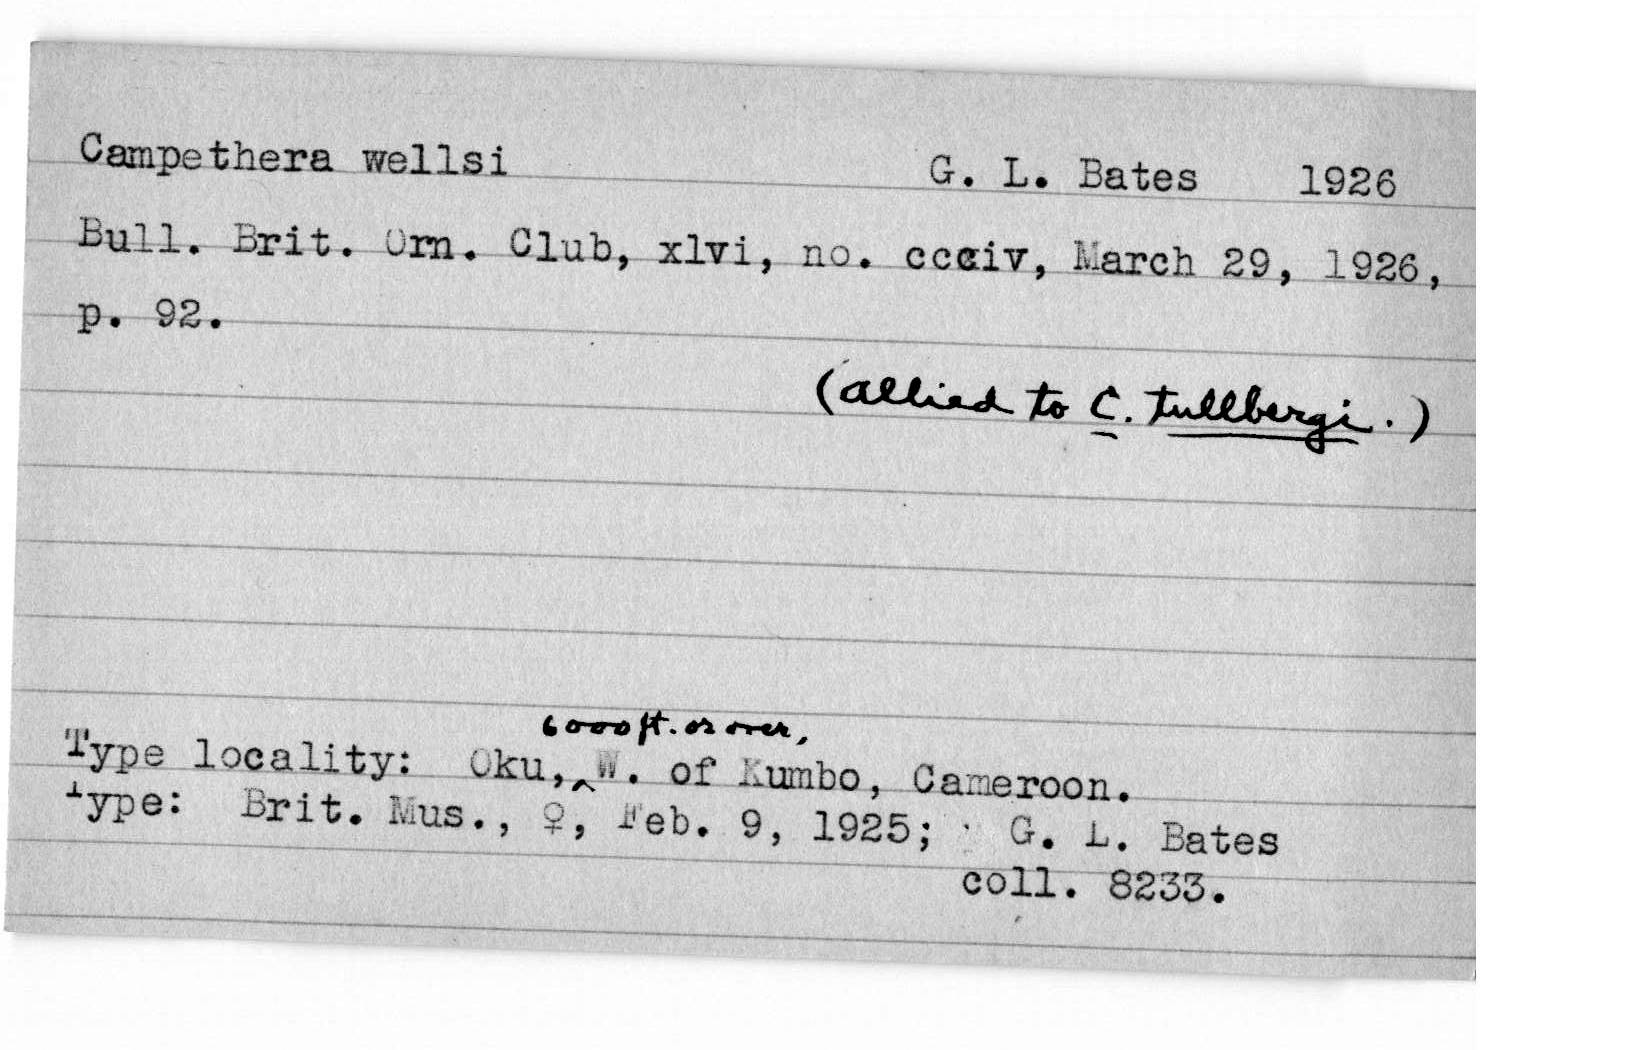 Campethera wellsi G. L. Bates 1926
Bull. Brit. Orn. Club, xlvi, no. ccciv, March 29, 1926,
p. 92.
(allied to C. tullbergi.)
6000 ft. or over,
Type locality: Oku, ‸ W. of Kumbo, Cameroon.
Type: Brit. Mus., ♀, Feb. 9, 1925; G. L. Bates
coll. 8233.